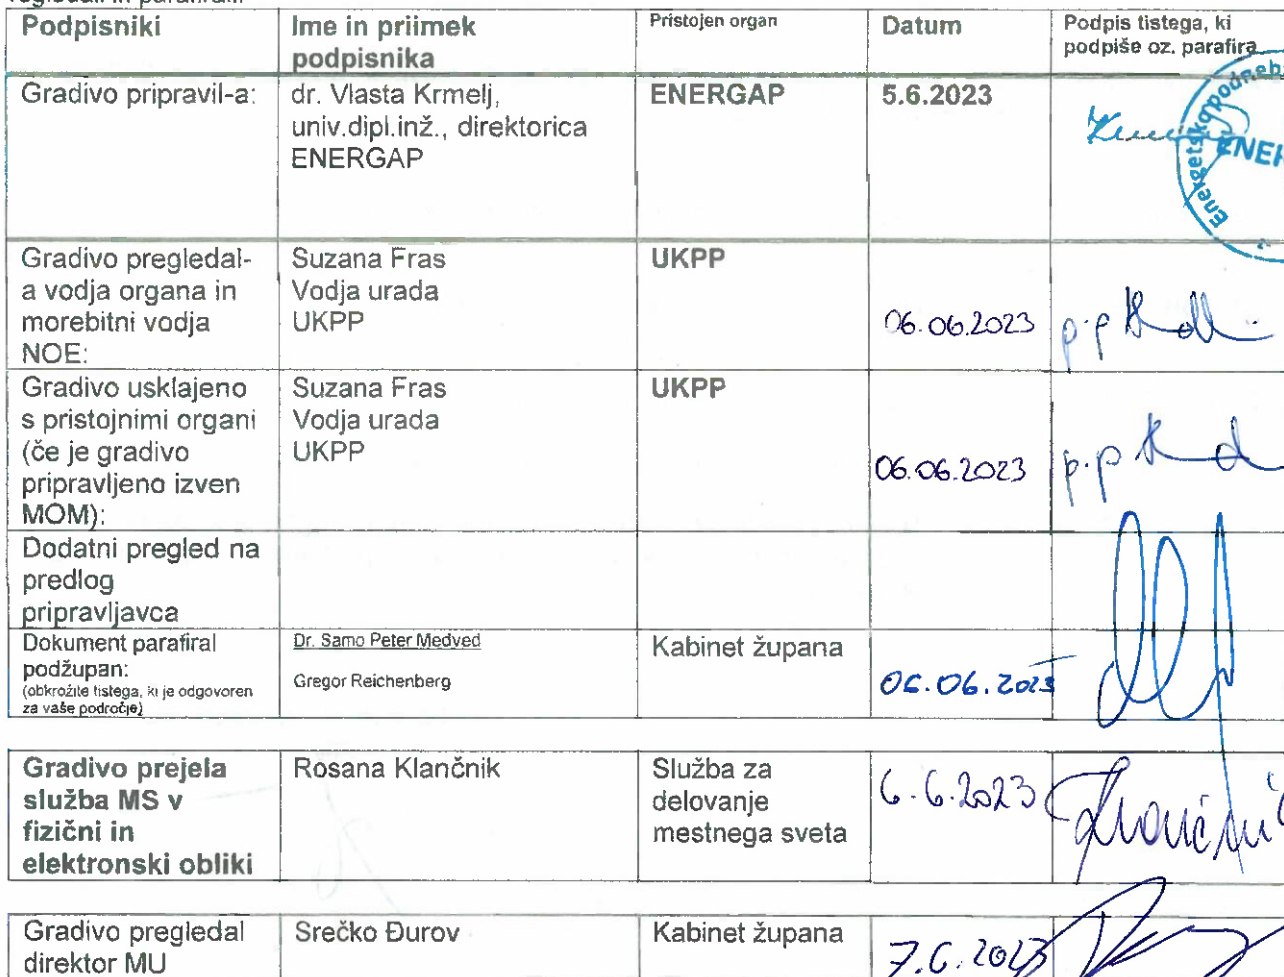 Podpisniki
Ime in priimek
podpisnika
Pristojen organ
Datum
Podpis tistega, ki
podpiše oz. parafira
Gradivo pripravil-a:
dr. Vlasta Krmelj,
univ.dipl.inž., direktorica
ENERGAP
ENERGAP
5.6.2023
Energetsko podneb
Gradivo pregledal-
a vodja organa in
morebitni vodja
NOE:
Suzana Fras
Vodja urada
UKPP
UKPP
06.06.2023
p.p
Gradivo usklajeno
s pristojnimi organi
(če je gradivo
pripravljeno izven
MOM):
Suzana Fras
Vodja urada
UKPP
UKPP
06.06.2023
p.p
Dodatni pregled na
predlog
pripravljavca
Dokument parafiral
podžupan:
(obkrožite tistega, ki je odgovoren
za vaše področje)
Dr. Samo Peter Medved
Gregor Reichenberg
Kabinet župana
06.06.2023
Gradivo prejela
služba MS v
fizični in
elektronski obliki
Rosana Klančnik
Služba za
delovanje
mestnega sveta
6.6.2023
Gradivo pregledal
direktor MU
Srečko Đurov
Kabinet župana
7.6.2023